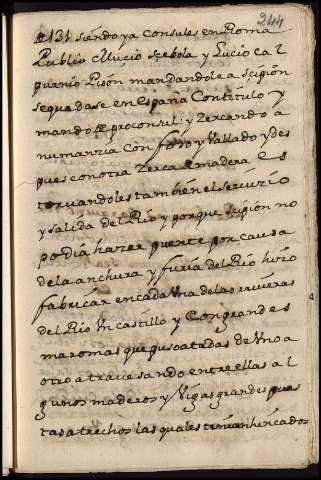 244
131 siendo ya Consules en Roma
Publio Mucio sçebola y Lucio cal
purnio Pisón mandandole a sçipión
se quedase en españa Con titulo y
mando de proconsul: y zercando a
numanzia con foso y Vallado y des
pues con otra zerca de madera es
toruandoles tambien el seruizio
y salida del Rio y porque sçipion no
podia hazer puente por causa
de la anchura y furia del Rio hizo
fabricar en cada Vna de las riueras
del Rio Vn castillo y Con grandes
maromas que puso atadas de Vno a
otro atrauesando entre ellas al
gunos maderos y Vigas grandes pues
tas a trechos las quales tenian hincados